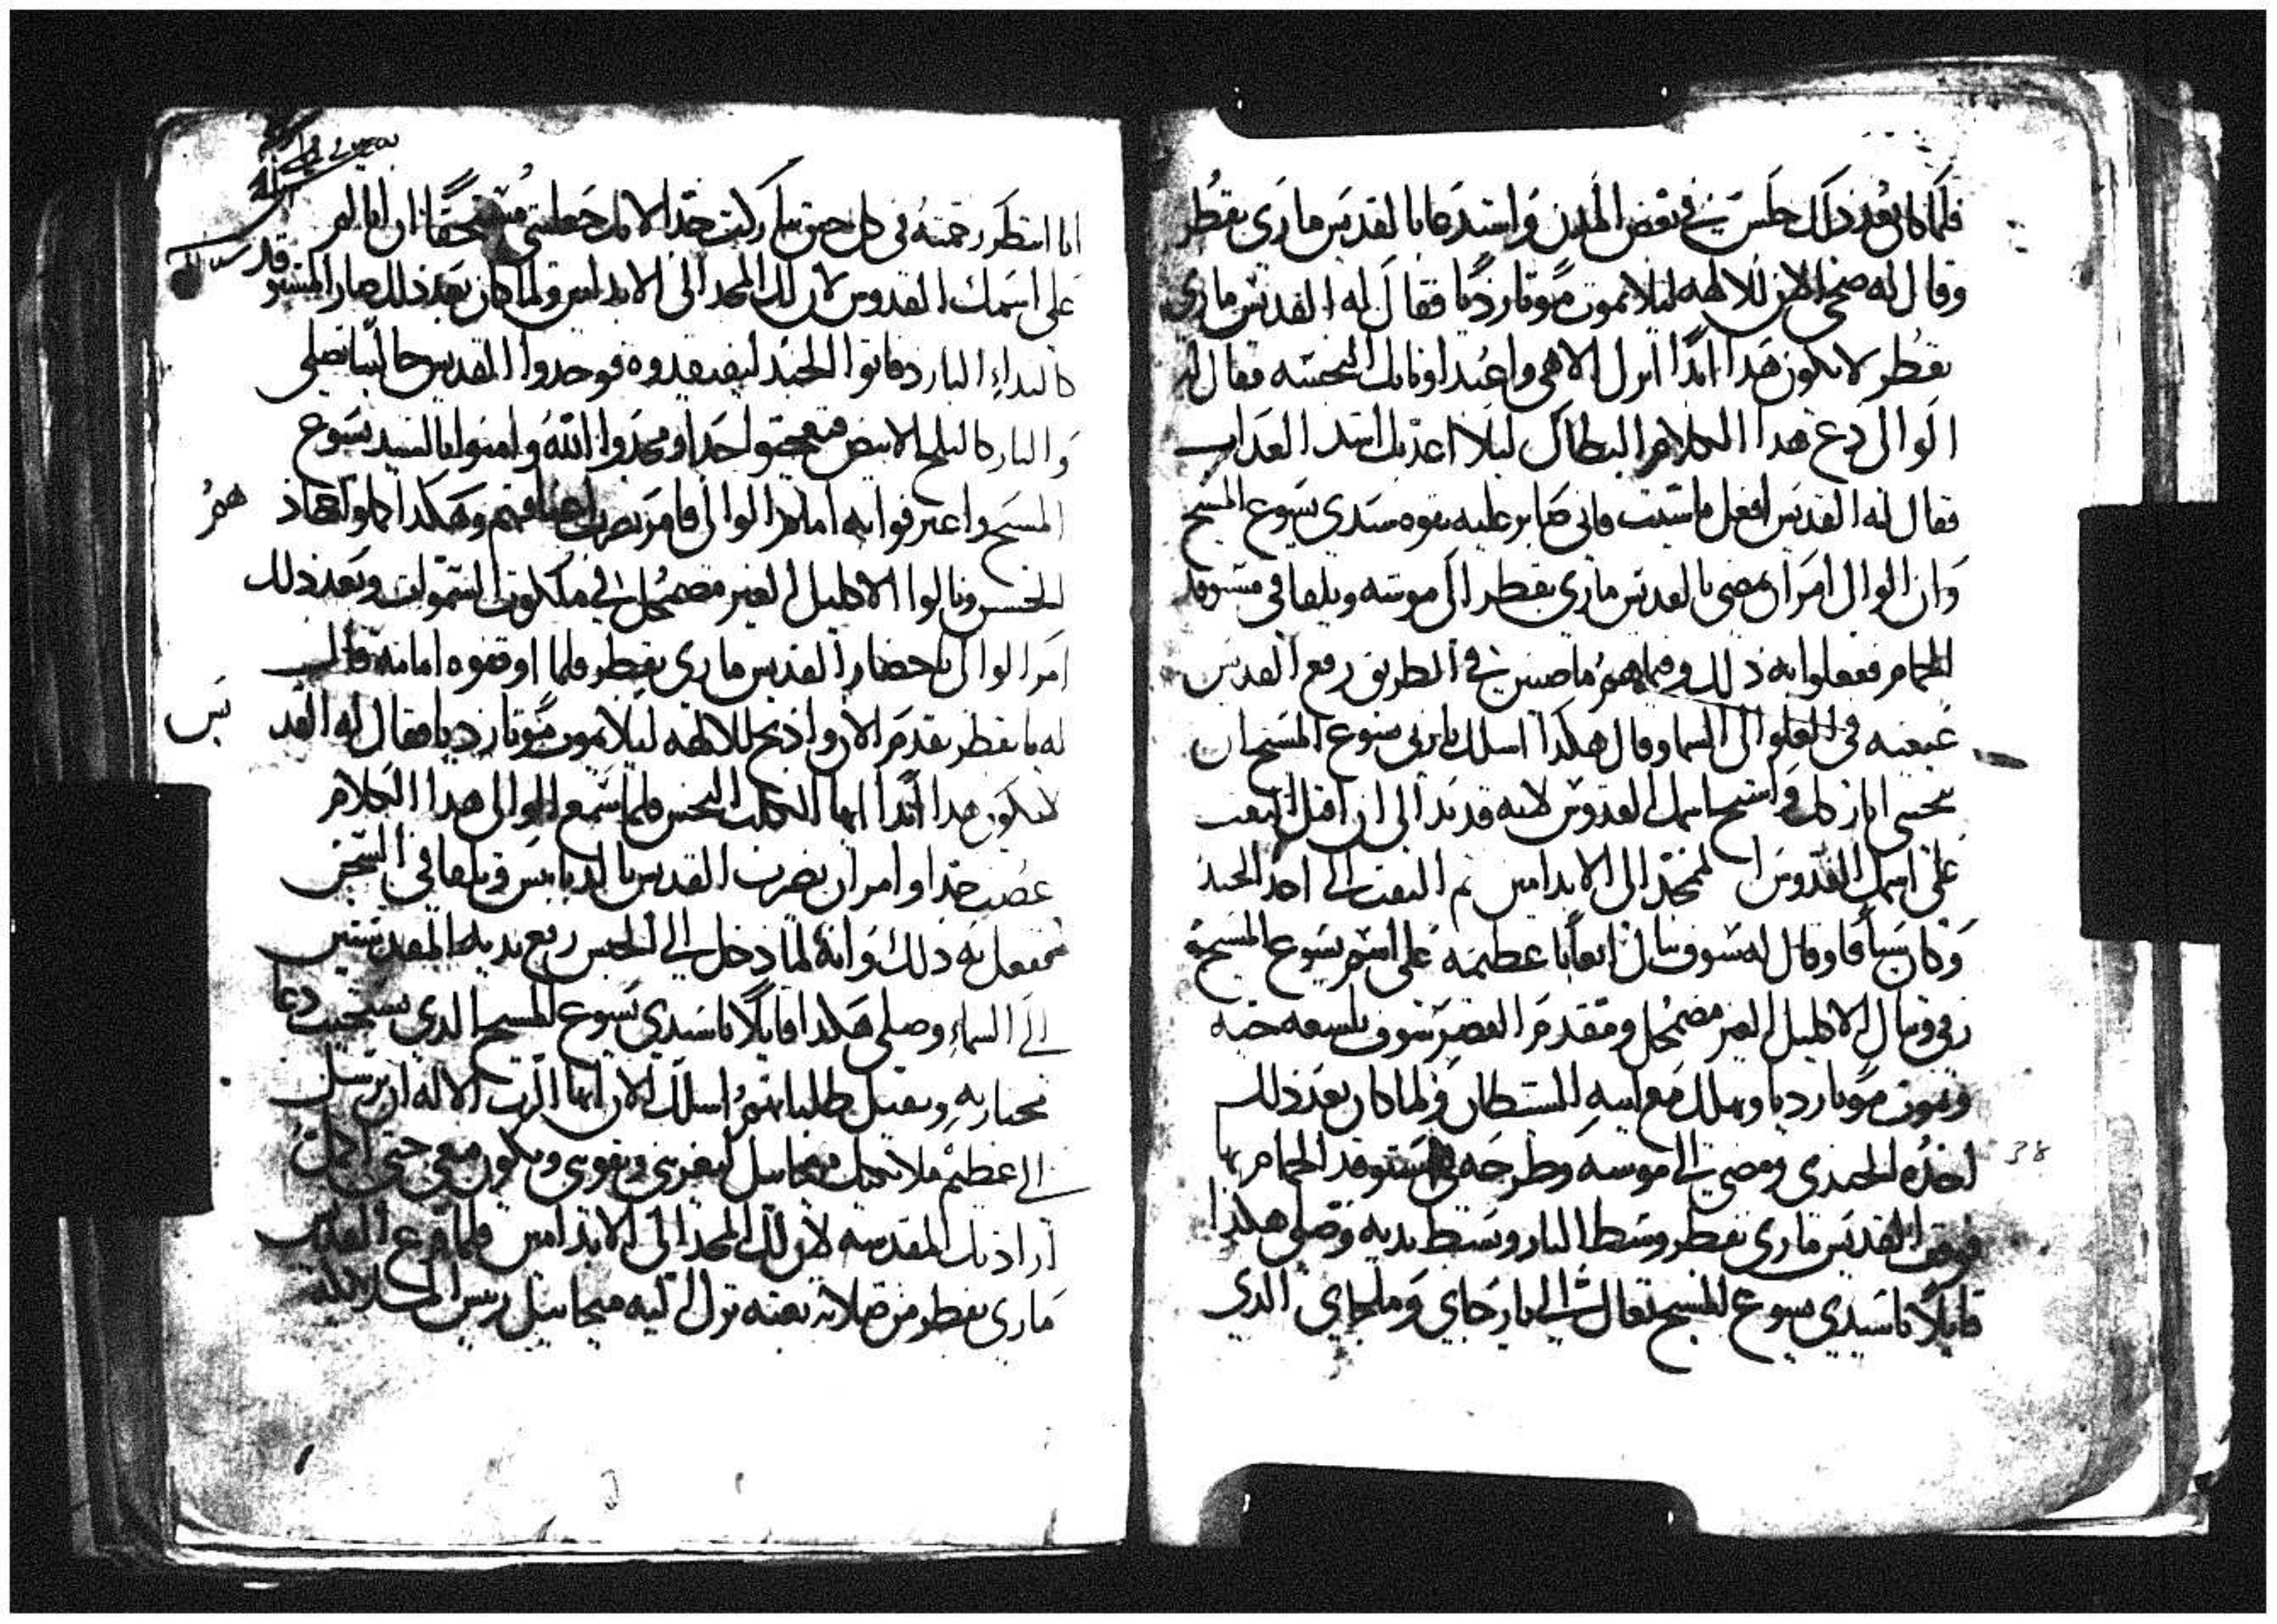 فلما كان بعد ذلك جلس في بعض المدن واستدعا بالقديس ماري بقطر
وقال له ضحي الان للالهه ليلا تموت موتا رديا فقال له القديس ماري
بقطر لا يكون هدا ابدا اترك الاهي واعبد اوتانك النجسه فقال له
الوالي دع هدا الكلام البطال ليلا اعدبك اشد العداب
فقال له القديس افعل ماشيت فاني صابر عليه بقوه سيدي يسوع المسيح
وان الوالي امر ان يمضي بالقديس ماري بقطر الى موسه ويلقا في مستوقد
الحمام ففعلوا به ذلك وفيما هم ماضيين في الطريق رفع القديس
عينيه في العلو الى السما وقال هكدا اسلك ياربي يسوع المسيح ان
اباركك واسبح اسمك القدوس لانه قد بدا لي ان اقبل التعب
على اسمك القدوس الممجد الى الابد امين ثم التفت الى احد الجند
وكان سيافا وقال له سوف تنال اتعابا عظيمه على اسم يسوع المسيح
وتنال الاكليل الغير مضمحل ومقدم القصر سوف تلسعه حيه
ويموت موتا رديا ويهلك مع ابيه الشيطان ولما كان بعد ذلك
اخده الجندي ومضي الى موسه وطرحه في مستوقد الحمام بها
فوقف القديس ماري بقطر وسط النار وبسط يديه وصلى هكدا
قايلا ياسيدي يسوع المسيح تعال الي يارجاي وملجاي الدي
38
انا انتظر رحمته في كل حين تباركت جدا لانك جعلتني مستحقا ان اتالم
على اسمك القدوس لان لك المجد الى الابد امين ولما كان بعد ذلك صار المستوقد
كالنداء البارد فاتوا الجند ليفتقدوه فوجدوا القديس جالسا يصلي
والنار كالثلج الابيض فتعجبوا جدا ومجدوا الله وامنوا بالسيد يسوع
المسيح واعترفوا به امام الوالي فامر بضرب اعناقهم وهكدا اكملوا جهادهم
الحسن ونالوا الاكليل الغير مضمحل في ملكوت السموات وبعد ذلك
امر الوالي باحضار القديس ماري بقطر فلما اوقفوه امامه قال
له يا بقطر تقدم الان واذبح للالهه ليلا تموت موتا رديا فقال له القديس
لا يكون هدا ابدا ايها الكلب النجس فلما سمع الوالي هدا الكلام
غضب جدا وامر ان يضرب القديس بالدبابيس ويلقا في السجن
ففعل به ذلك وانه لما دخل الى الحبس رفع يديه المقدستين
الى السماء وصلى هكدا قايلا ياسيدي يسوع المسيح الدي يستجيب دعا
مختاريه ويقبل طلباتهم اسلك الان ايها الرب الاله ان ترسل
الي عظيم ملايكتك ميخاييل ليعزيني ويقويني ويكون معي حتى اكمل
ارادتك المقدسه لان لك المجد الى الابد امين فلما فرغ القديس
ماري بقطر من صلاته بغته نزل اليه ميخاييل رييس الملايكه